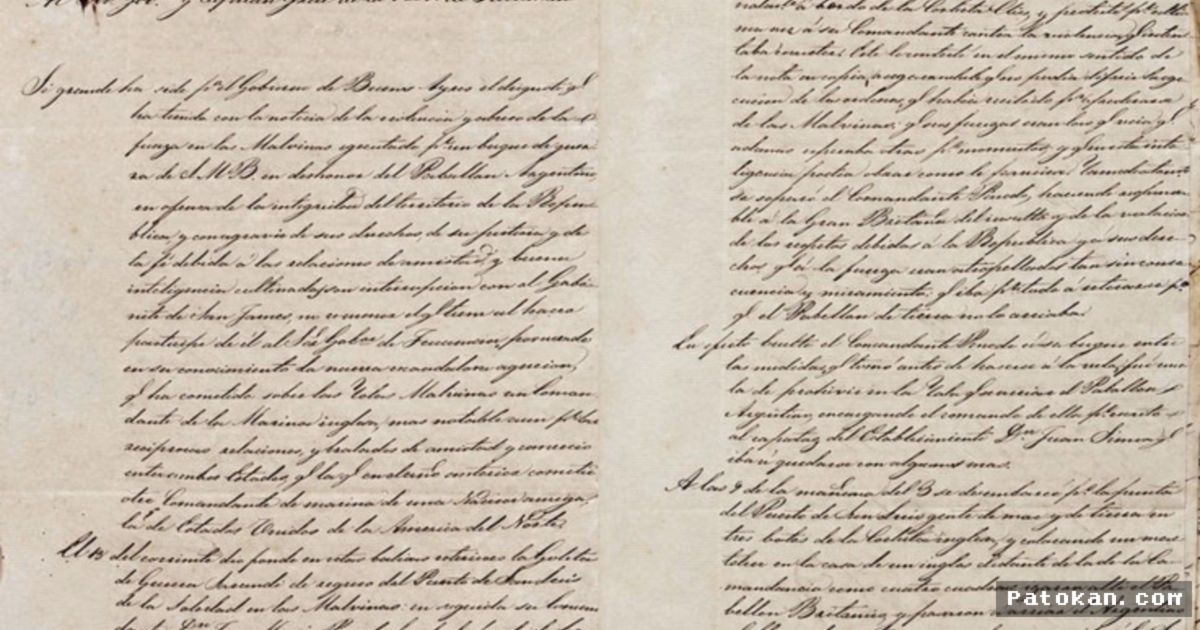 Si grande ha sido pr. el Gobierno de Buenos Ayres el disgusto q.
ha tenido con la noticia de la violencia y abuso de la
fuerza en las Malvinas egecutado pr. un buque de guer-
ra de S.M.B. en deshonor del Pabellon Argentino,
en ofensa de la integridad del territorio de la Repu-
blica, y en agravio de sus derechos, de su justicia y de
la fé debida á las relaciones de amistad y buena
inteligencia cultivadas sin interrupcion con el Gabi-
nete de San James, no es menor el q. tiene al hacer
participe de él al Sor. Gobor. de
en su conocimiento la nueva escandalosa agresion,
q. ha cometido sobre las Yslas Malvinas un Coman-
dante de la Marina inglesa, mas notable aun pr. las
reciprocas relaciones, y tratados de amistad y comercio
entre ambos Estados, q. la q. en el año anterior cometió
otro Comandante de marina de una Nacion amiga,
la de Estados Unidos de la America del Norte.
El 15 del corriente dio fondo en estas balisas interiores la Goleta
de Guerra Sarandi de regreso del Puerto de San Luis
de la Soledad en las Malvinas: en seguida su Coman-
á bordo de la Corbeta Clio, y protestó pr. ultima
vez á su Comandante contra la violencia q. inten-
taba cometer. Este le contestó en el mismo sentido de
la nota en copia,
cucion de las ordenes, q. habia recibido pr. apoderarse
de las Malvinas; q. sus fuerzas eran las q. veia y q.
ademas esperaba otras pr. momentos, y q. en esta inte-
ligencia podia obrar como le pareciera.
se separó el Comandante Pinedo, haciendo responsa-
ble á la Gran Bretaña del insulto y de la violacion
de los respetos debidos á la Republica y á sus dere-
chos q. á la fuerza eran atropellados tan sin conse-
cuencia y miramiento; q. iba pr. tanto á retirarse pero
q. el Pabellon de tierra no lo arriaba.
En efecto vuelto el Comandante Pinedo á su buque entre
las medidas, q. tomó antes de hacerse á la vela, fué una
la de prohivir en la Ysla q. se arriase el Pabellon
Argentino, encargando el comando de ella pr. escrito
al capataz del Establecimiento Dn. Juan Simon q.
iba á quedarse con algunos mas.
A las 9 de la mañana del 3 se desembarcó pr. la punta
del Puerto de San Luis gente de mar y de tierra en
tres botes de la Corbeta inglesa, y colocando un mas-
telero en la casa de un ingles distante de la de la Co-
mandancia como cuatro cuadras
bellon Britanico, y pasaron á arriar el Argentino
Patokan.com